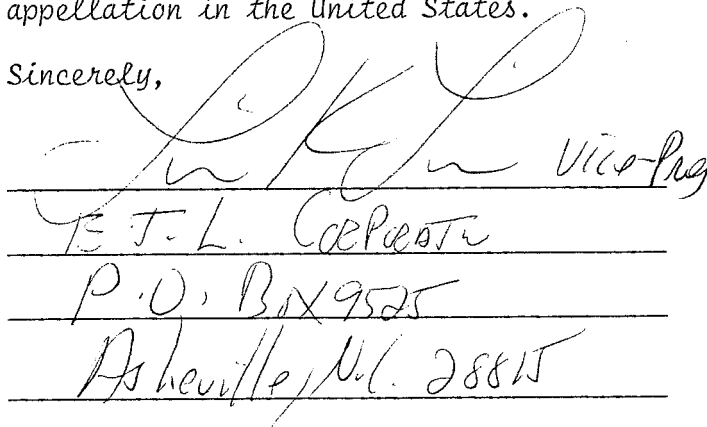 appellation in the United States.
Sincerely,
Vice-Pres
E.T.L. Corporatn
P.O. Box 9525
Asheville, N.C. 28815